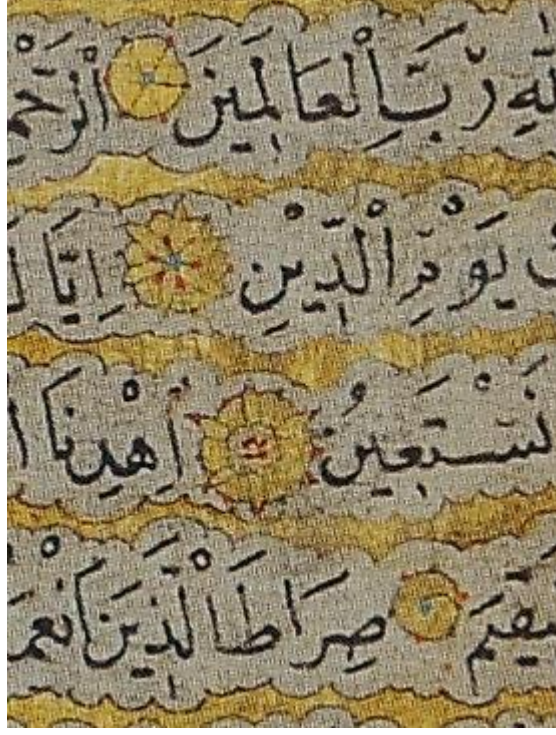 للهِ رَبِّ الْعَالَمِينَ الرَّحْمَ
يَوْمِ الدِّينِ إِيَّا
نَسْتَعِينُ اهْدِنَا ا
سْتَقِيمَ صِرَاطَ الَّذِينَ أَنْعَمْ